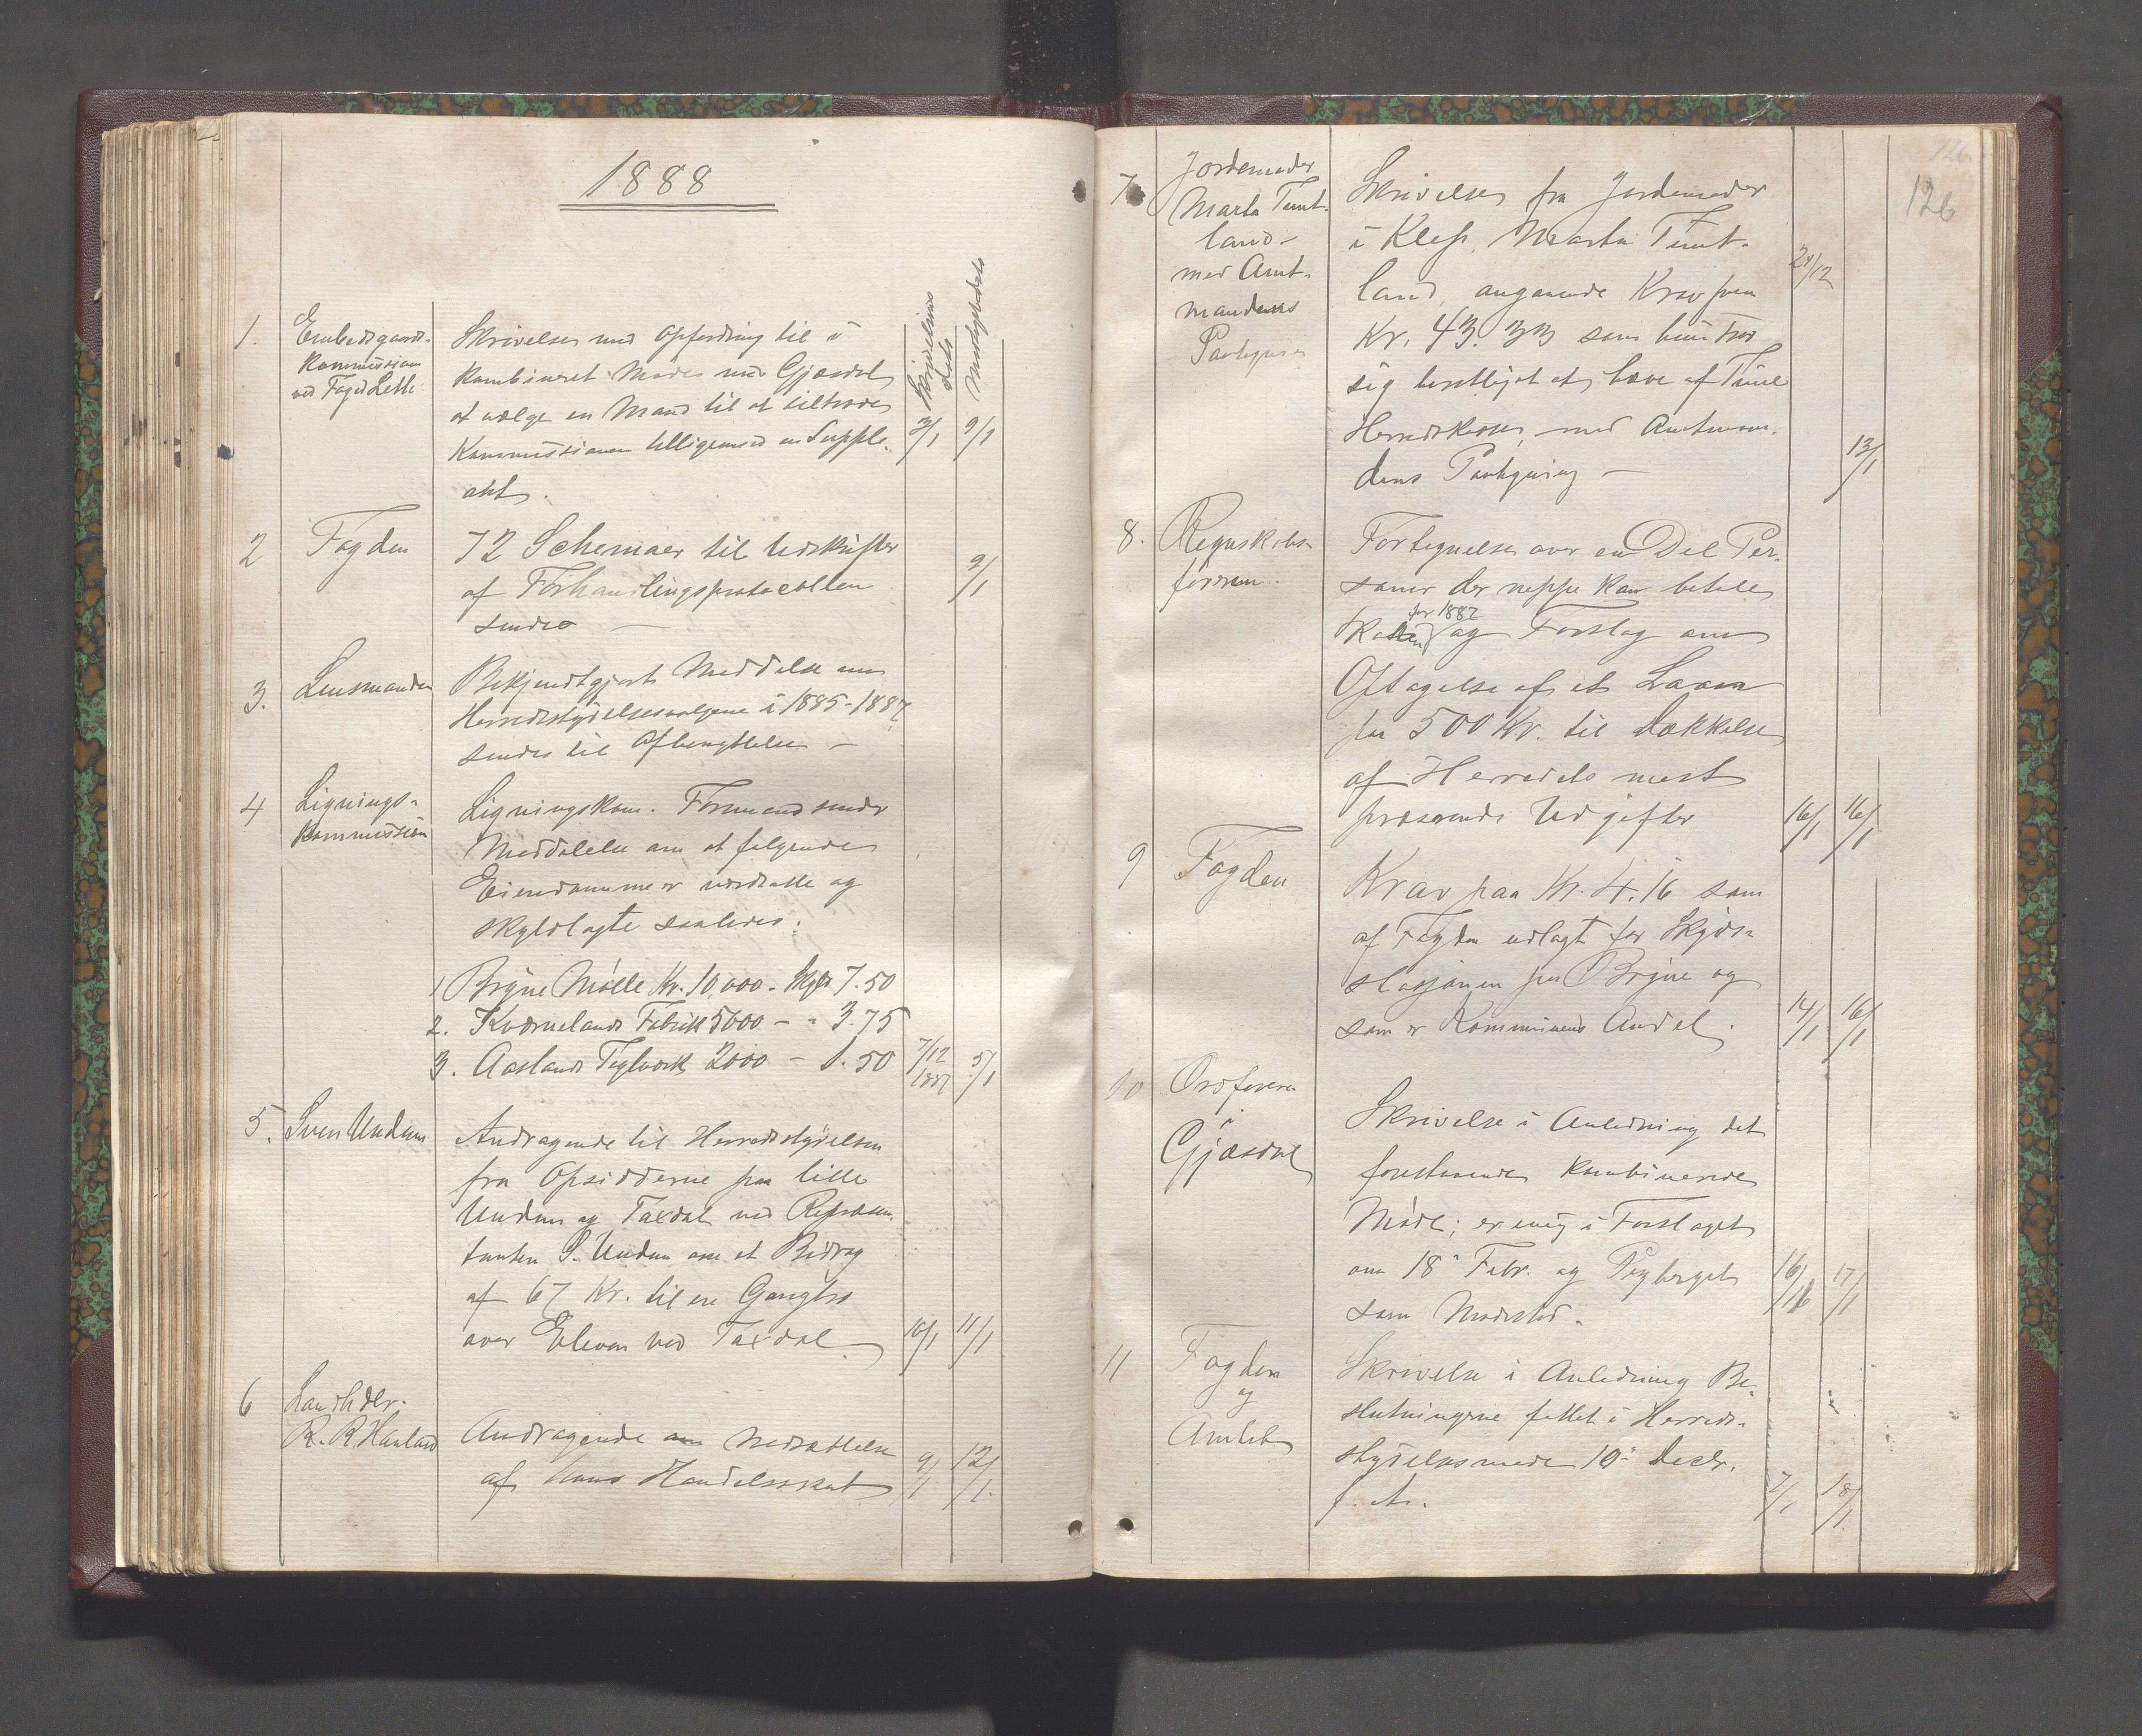 1888
Skrivelsens
Dato
Modtagelsdato
1. Embedsgaards-
Kommission
ved Foged Leth
Skrivelse med Opfordring til i
Kombineret Møde med Gjæsdal
at vælge en Mand til at tiltræde
Kommissionen tilligemed en Supple-
ant. 3/1 9/1
2 Fogden
72 Schemaer til Udskrifter
af Forhandlingsprotocollen
sendes — 9/1
3. Lensmanden
Bekjendtgjort Meddelse om
Herredsstyrelsesvalgene i 1885-1887
sendes til Afbenyttelse —
4 Lignings-
kommission
Ligningskom. Formand sender
Meddelelse om at følgende
Eiendomme er værdsatte og
skyldlagte saaledes:
1 Bryne Mølle Kr. 10,000 - Skyld 7.50
2. Kværnelands Fabrik 5000 - " 3.75
3. Aaslands Teglværk 2000 - 1.50 7/12 1887 5/1
5. Sven Undem
Andragende til Herredsstyrelsen
fra Opsidderne paa lille
Undem og Taxdal ved Repræsen-
tanten S. Undem om et Bidrag
af 67 Kr. til en Gangbro
over Elven ved Taxdal 10/1 11/1
6 Landhdlr.
R. R. Haaland
Andragende om Nedsættelse
af hans Handelsskat 9/1 12/1
126
7 Jordemoder
Marta Tunt-
land
med Amt-
mandens
Paategning
Skrivelse fra Jordemoder
i Klep, Marta Tunt-
land, angaaende Krav paa
Kr. 43.33 som hun tror
sig berettiget at have af Time
Herredskasse, med Amtman-
dens Paategning — 24/12 13/1
8. Regnskabs-
føreren.
Fortegnelse over en Del Per-
soner der neppe kan betale
Skatten for 1887 og Forslag om
Optagelse af et Laan
paa 500 Kr. til Dækkelse
af Herredets mest
presserende Udgifter 16/1 16/1
9 Fogden
Krav paa Kr. 4.16 som
af Fogden udlagt for Skyds-
stasjonen paa Bryne og
som er Kommunens Andel. 14/1 16/1
10 Ordføreren
i
Gjæsdal
Skrivelse i Anledning det
forestaaende Kombinerede
Møde; er enig i Forslaget
om 18de Febr. og
som Mødested. 16/1 17/1
11 Fogden
og
Amtet
Skrivelse i Anledning Be-
slutningerne fattet i Herreds-
styrelsesmøde 10de Decbr.
f. A. 7/1 18/1